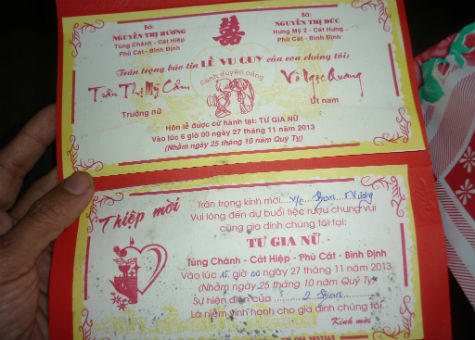 Bà:
NGUYỄN THỊ HƯƠNG
Tùng Chánh - Cát Hiệp
Phù Cát - Bình Định
Bà:
NGUYỄN THỊ ĐỨC
Hưng Mỹ 2 - Cát Hưng
Phù Cát - Bình Định
囍
Trân trọng báo tin LỄ VU QUY của con chúng tôi:
Trần Thị Mỹ Cẩm
Trưởng nữ
Võ Ngọc Quang
Út nam
Hôn lễ được cử hành tại: TƯ GIA NỮ
Vào lúc 6 giờ 00 ngày 27 tháng 11 năm 2013
(Nhằm ngày 25 tháng 10 năm Quý Tỵ)
Thiệp mời
Trân trọng kính mời
Vui lòng đến dự buổi tiệc rượu chung vui
cùng gia đình chúng tôi tại:
TƯ GIA NỮ
Tùng Chánh - Cát Hiệp - Phù Cát - Bình Định
Vào lúc giờ 00 ngày 27 tháng 11 năm 2013
(Nhằm ngày 25 tháng 10 năm Quý Tỵ)
Sự hiện diện của 2
Là niềm vinh hạnh cho gia đình chúng tôi.
Kính mời